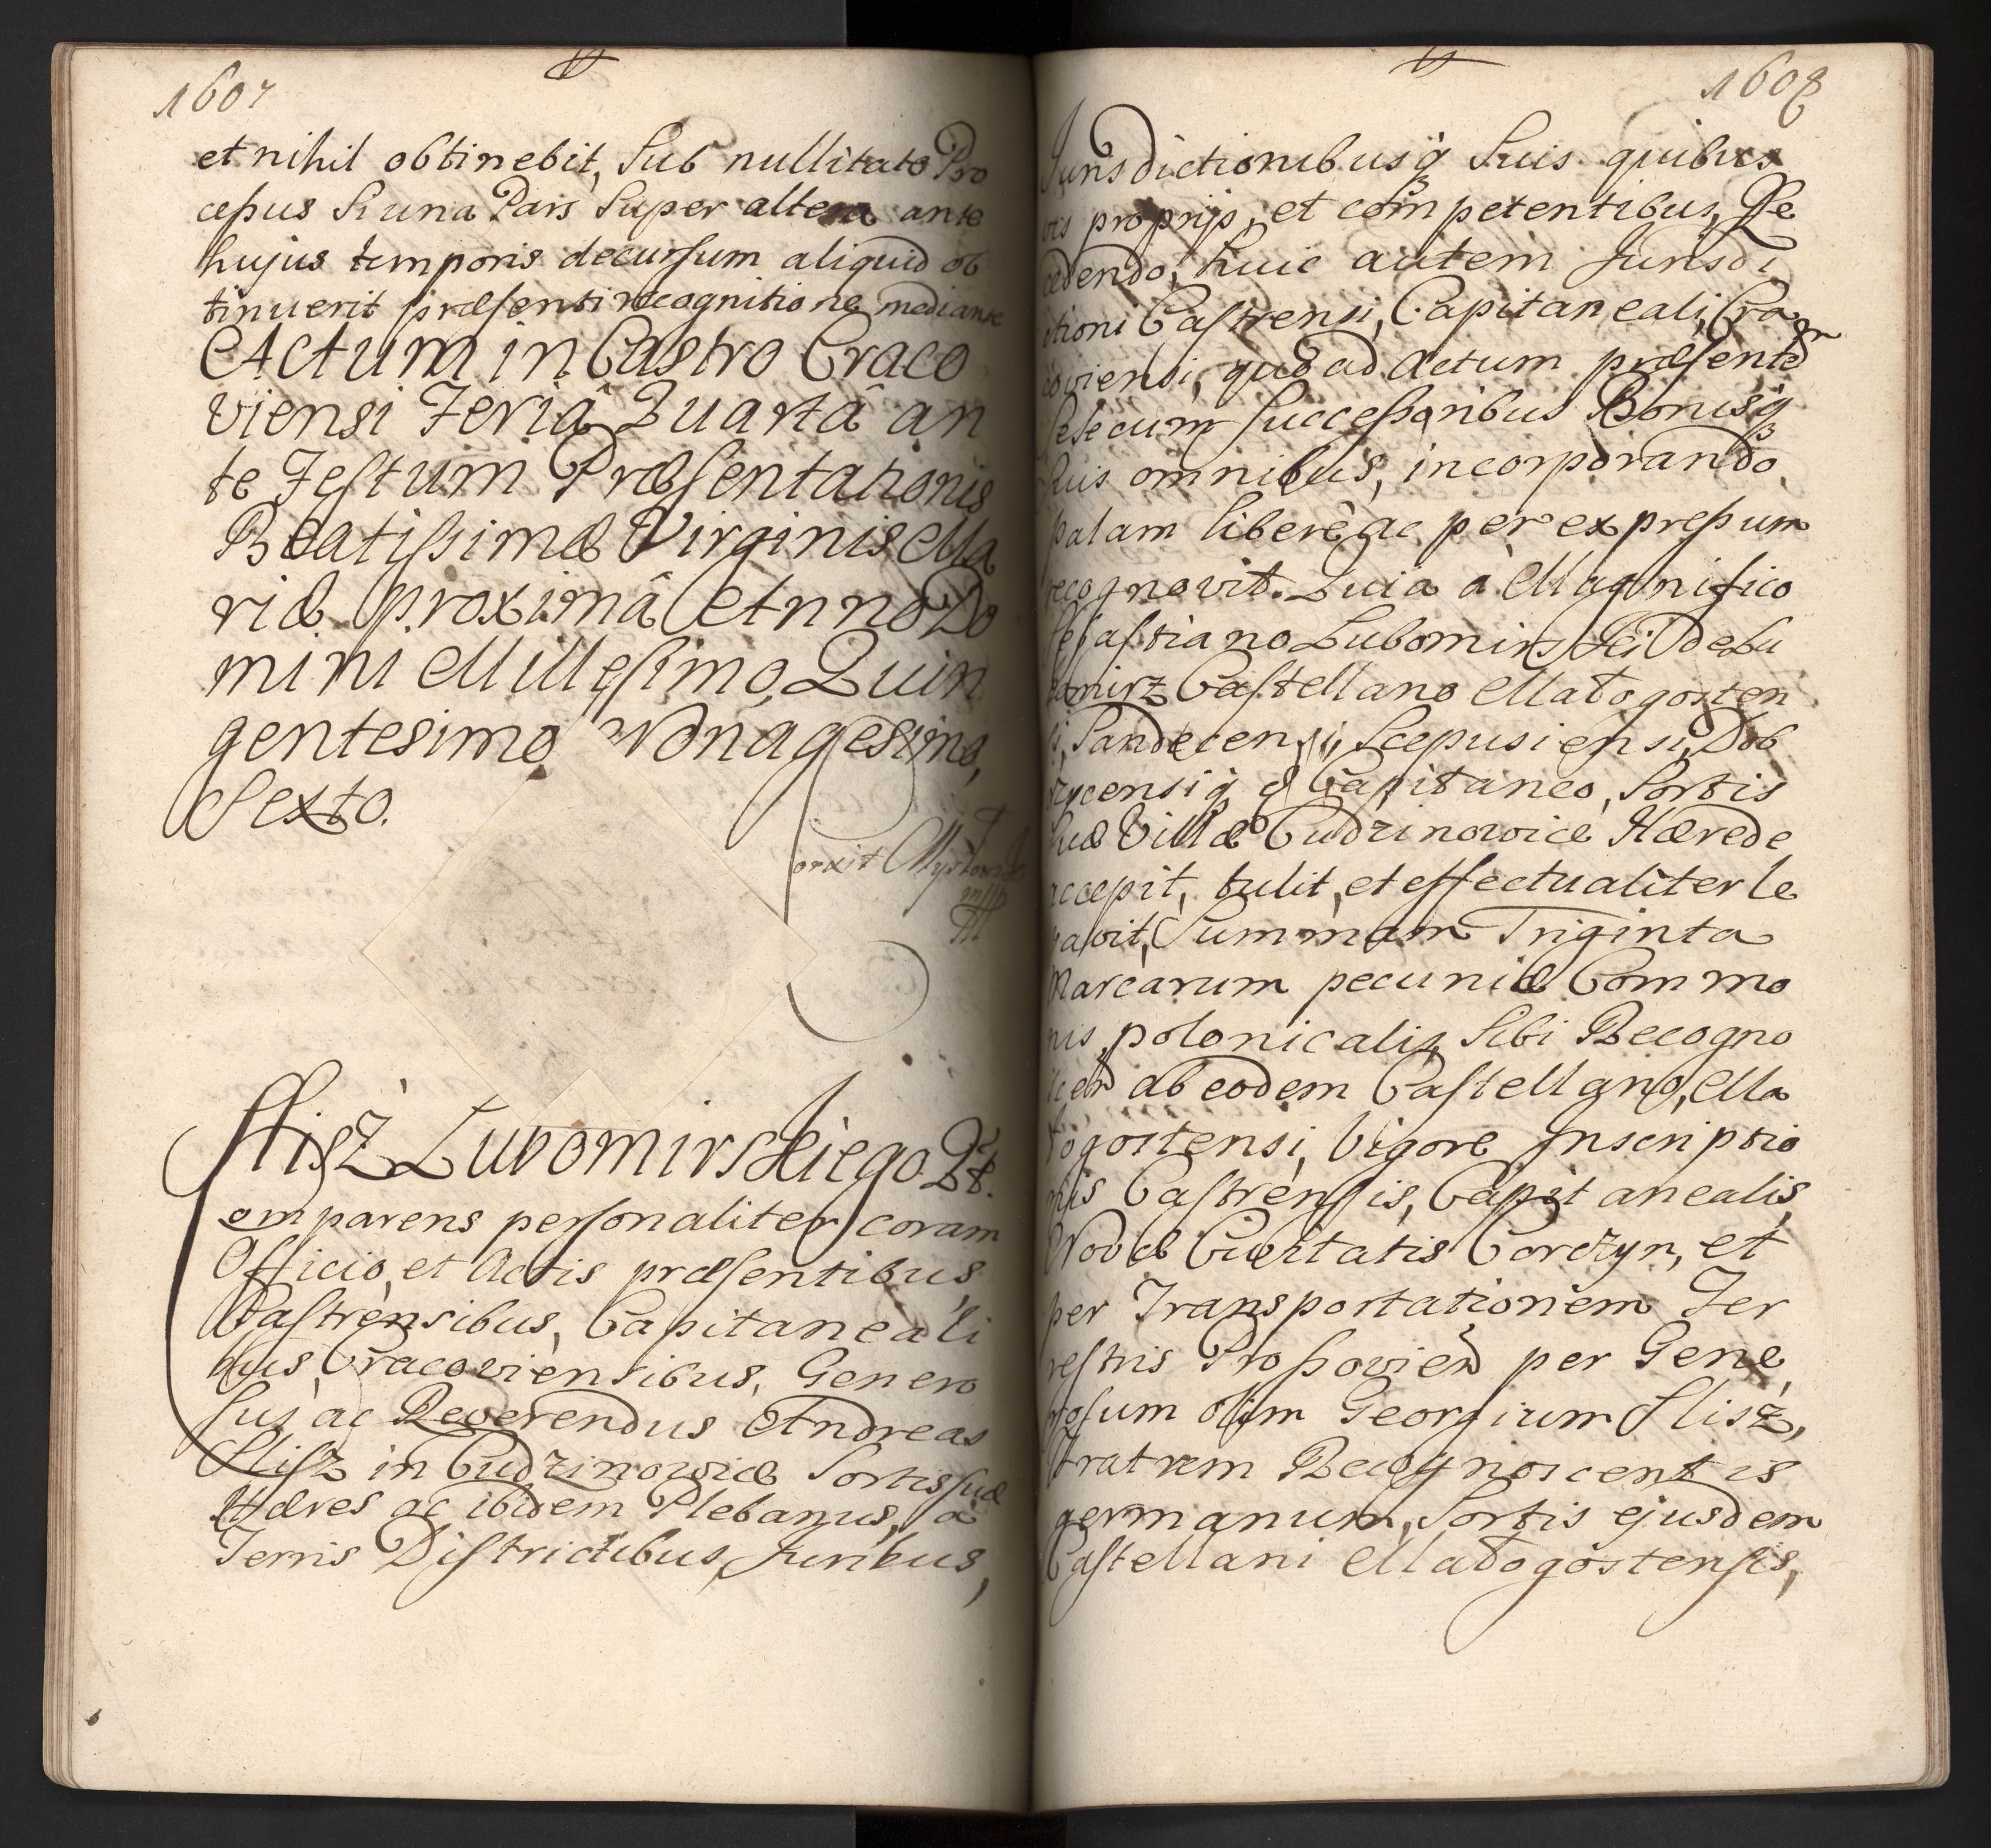 1607
et nihil obtinebit, Sub nullitate Pro
cessus Si una Pars Super altera ante
hujus temporis decursum aliquid ob
tinuerit præsenti recognitione mediante
Actum in Castro Craco
viensi Feriâ Quartâ an
te Festum Præsentationis
Beatissimæ Virginis Ma
riæ proximâ Anno Do
mini Millesimo, Quin
gentesimo Nonagesimo,
Sexto.
Hisz Lubomirskiego Qt.
omparens personaliter coram
Officio, et Actis præsentibus
Castrensibus, Capitaneali
bus, Cracoviensibus, Genero
sus ac Reverendus Andreas
in Cudzinowice Sortis suæ
Hæres ac ibidem Plebanus, a
Terris Districtibus, Juribus,
1608
Jurisdictionibusq Suis quibus
vis proprijs, et competentibus, Re
cedendo, huic autem Jurisdi
ctioni Castrensi, Capitaneali, Cra
coviensi, quo ad Actum præsentem
Sese cum Successoribus Bonisq
Suis omnibus, incorporando,
palam liberè ac per expressum
recognovit. Quia à Magnifico
Sebastiano Lubomirski de Lu
bomirz Castellano Małogosten
si, Sandecensi, Scepusiensi, Dob
czycensiq & Capitaneo, Sortis
suæ Villæ Cudzinowice Hærede
accepit, tulit, et effectualiter le
vavit, Summam Triginta
Marcarum pecuniæ Commu
nis polonicalis, Sibi Recogno
scen ab eodem Castellano, Ma
łogostensi, Vigore Inscriptio
nis Castrensis, Capitanealis,
Novæ Civitatis Corczyn, et
per Transportationem Ter
restris Prossovien per Gene
rosum olim Georgium Slisz,
Fratrem Recognoscentis
germanum, Sortis ejusdem
Castellani Małogostensis,